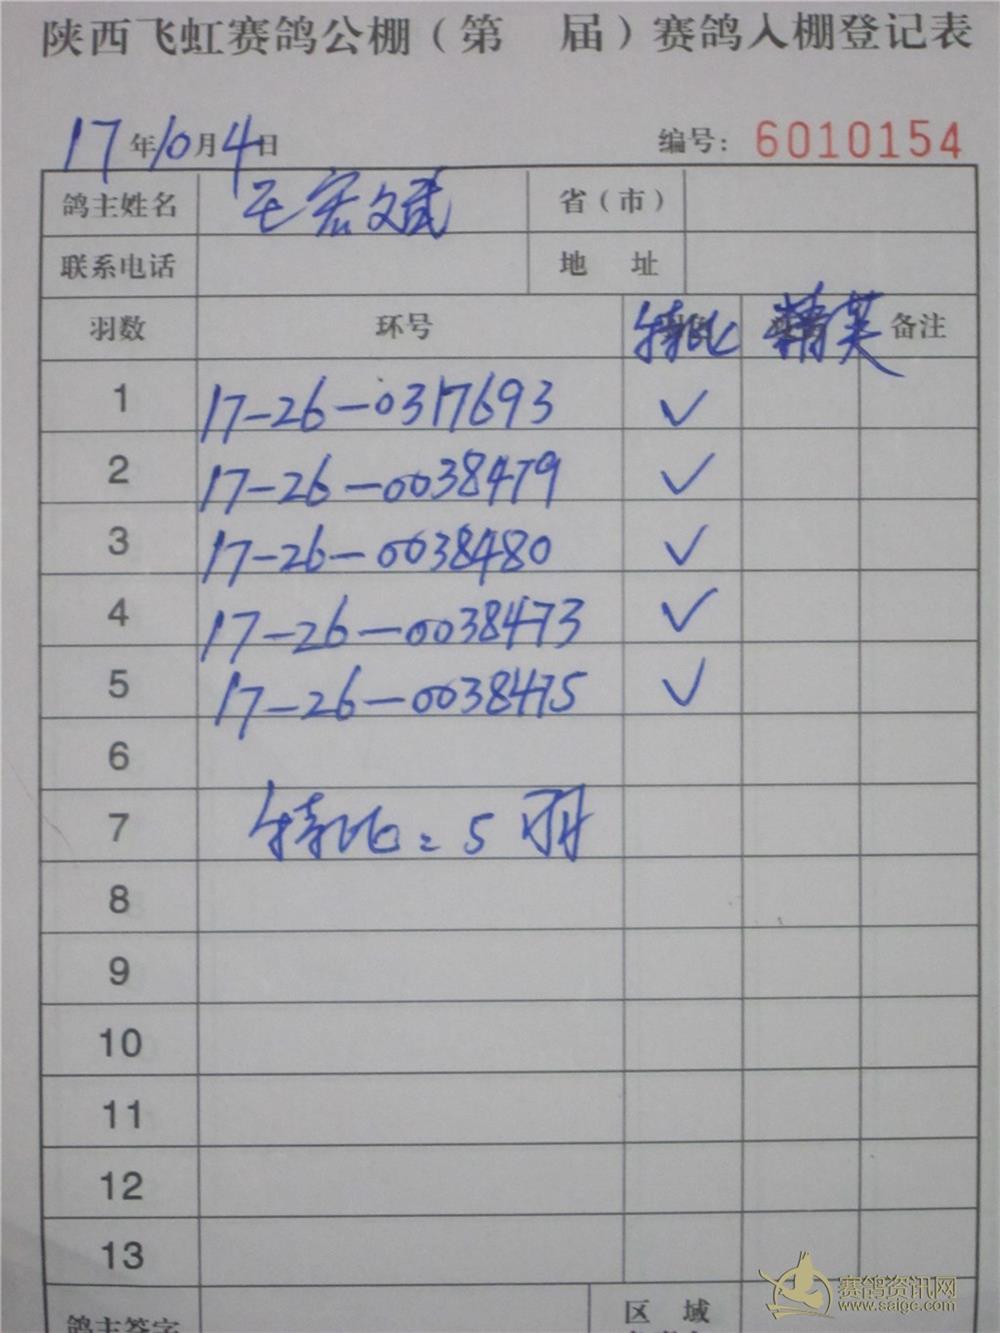 陕西飞虹赛鸽公棚（第 届）赛鸽入棚登记表
17年10月4日 编号：6010154
鸽主姓名 王宏斌 省（市）
联系电话 地 址
羽数 环号 特比 精英 备注
1 17-26-0317693 ✓
2 17-26-0038479 ✓
3 17-26-0038480 ✓
4 17-26-0038473 ✓
5 17-26-0038475 ✓
6
7 特比：5羽
8
9
10
11
12
13
鸽主签字 区 域
赛鸽资讯网
www.saigc.com